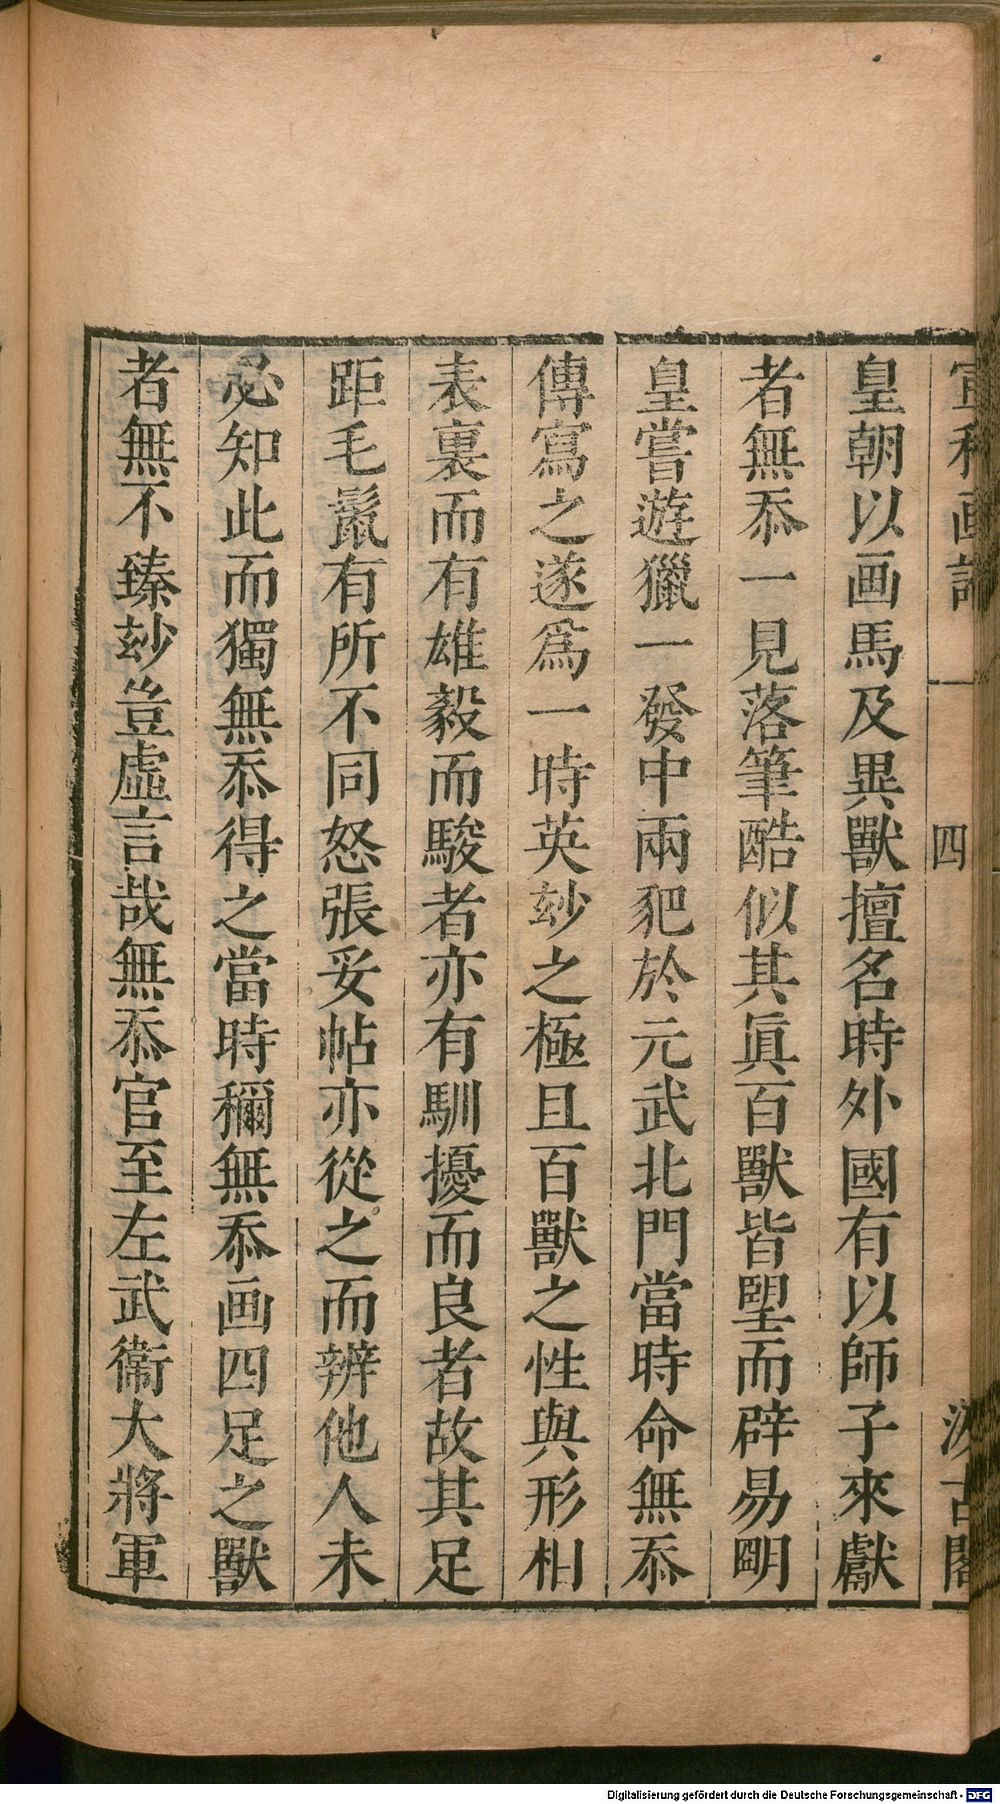 皇朝以画馬及異獸擅名時外國有以師子來獻
者無忝一見落筆酷似其眞百獸皆朢而辟易明
皇嘗遊獵一發中兩豝於元武北門當時命無忝
傳寫之遂爲一時英玅之極且百獸之性與形相
表裏而有雄毅而駿者亦有馴擾而良者故其足
距毛鬣有所不同怒張妥帖亦從之而辨他人未
必知此而獨無忝得之當時稱無忝画四足之獸
者無不臻玅豈虛言哉無忝官至左武衞大將軍
四
Digitalisierung gefördert durch die Deutsche Forschungsgemeinschaft - DFG